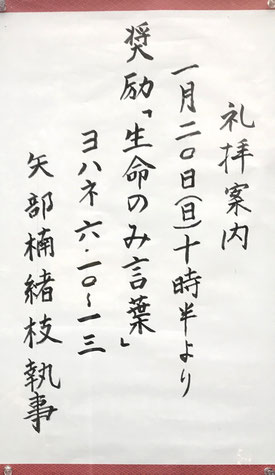 礼拝案内
一月二〇日(日)十時半より
奨励「生命のみ言葉」
ヨハネ六・一〇～一三
矢部楠緒枝執事